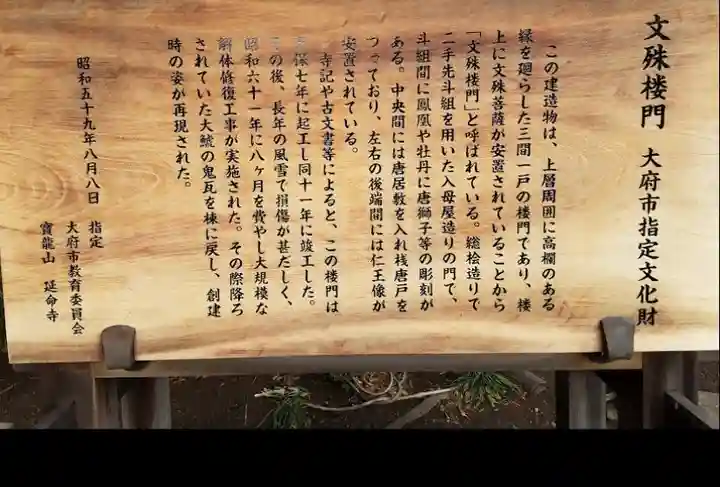 文殊楼門 大府市指定文化財
この建造物は、上層周囲に高欄のある
縁を廻らした三間一戸の楼門であり、楼
上に文殊菩薩が安置されていることから
「文殊楼門」と呼ばれている。総桧造りで
二手先斗組を用いた入母屋造りの門で、
斗組間に鳳凰や牡丹に唐獅子等の彫刻が
ある。中央間には唐居敷を入れ桟唐戸を
つっており、左右の後端間には仁王像が
安置されている。
寺記や古文書等によると、この楼門は
保七年に起工し同十一年に竣工した。
の後、長年の風雪で損傷が甚だしく、
昭和六十一年に八ヶ月を費やし大規模な
解体修復工事が実施された。その際降ろ
されていた大鯱の鬼瓦を棟に戻し、創建
時の姿が再現された。
昭和五十九年八月八日 指定
大府市教育委員会
寶龍山 延命寺